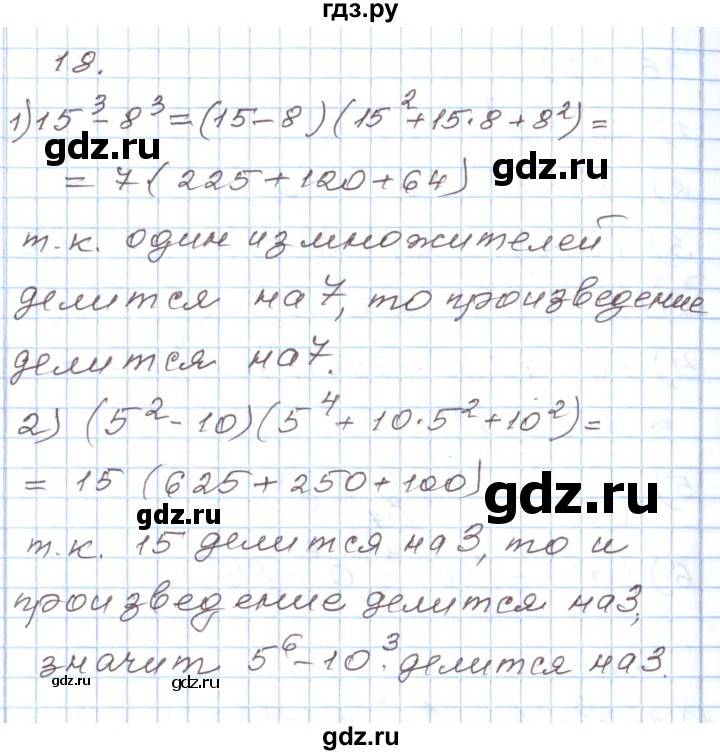 гдз.ру
18.
1) 15³ - 8³ = (15 - 8) (15² + 15·8 + 8²) =
gdz.ru
gdz.ru
= 7·( 225 + 120 + 64 )
т.к. один из множителей
делится на 7, то произведение
делится на 7.
2) (5² - 10) (5⁴ + 10·5² + 10²) =
= 15 (625 + 250 + 100)
gdz.ru
gdz.ru
т.к. 15 делится на 3, то и
произведение делится на 3,
значит 5⁶ - 10³ делится на 3.
gdz.ru
gdz.ru
gdz.ru